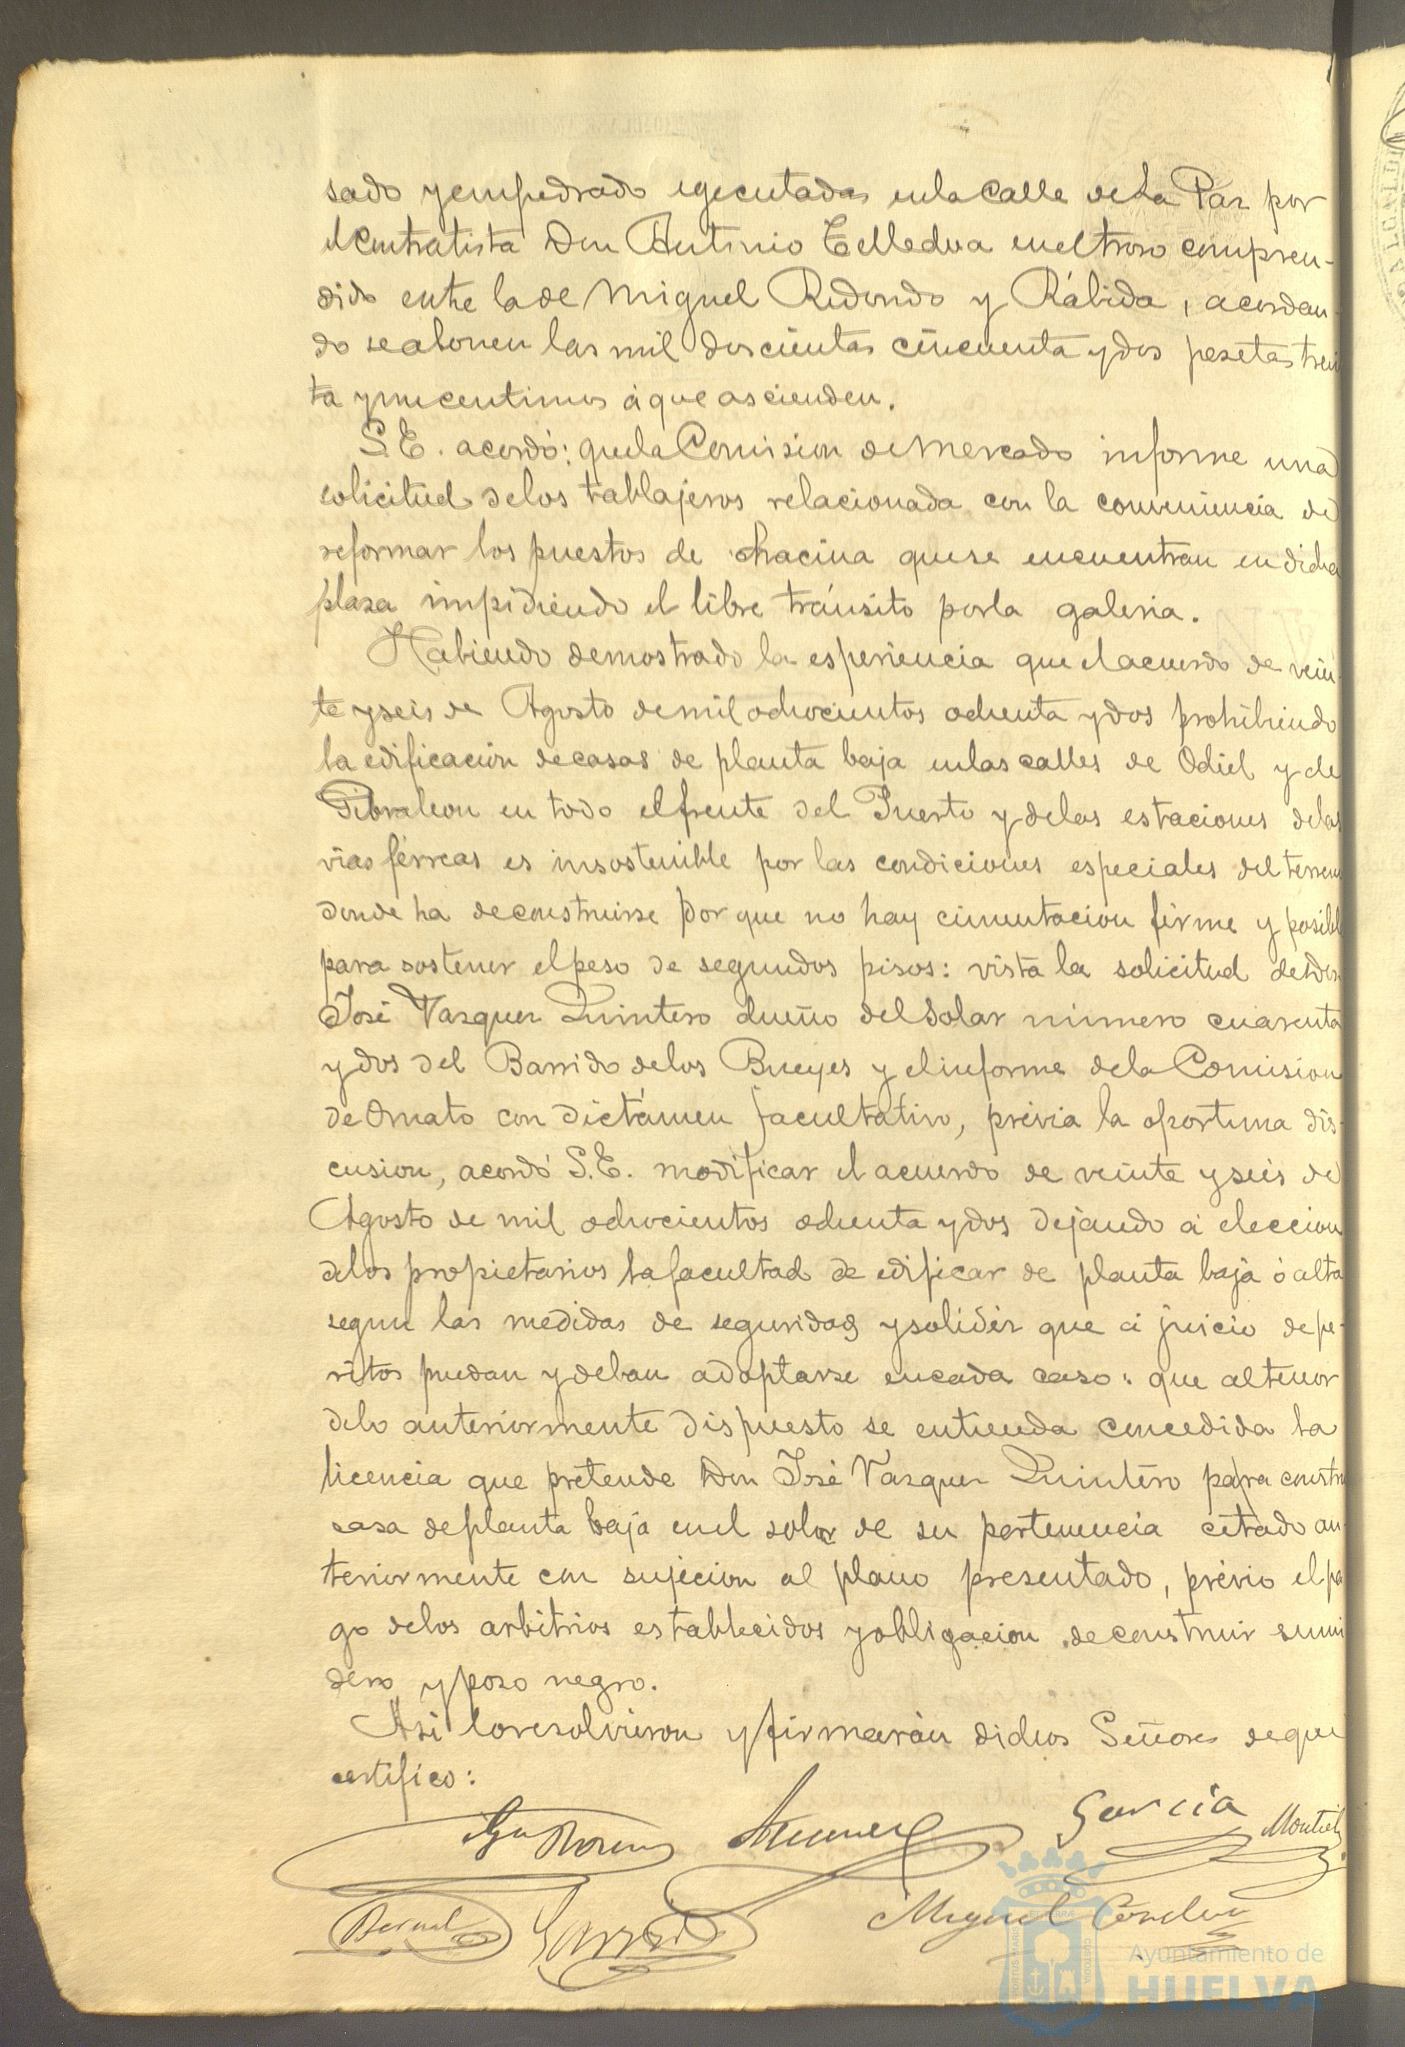 sado y empedrado egecutadas en la calle de La Paz por
el Contratista Don Antonio en el trozo compren-
dido entre la de Miguel Redondo y Rábida, acordan-
do se abonen las mil doscientas cincuenta y dos pesetas trein
ta y un centimos á que ascienden.
S. E. acordó: que la Comision de Mercado informe una
solicitud de los tablajeros relacionada con la conveniencia de
reformar los puestos de chacina que se encuentran en dicha
plaza impidiendo el libre tránsito por la galeria.
Habiendo demostrado la esperiencia que el acuerdo de vein
te y seis de Agosto de mil ochocientos ochenta y dos prohibiendo
la edificación de casas de planta baja en las calles de Odiel y de
Gibraleon en todo el frente del Puerto y de las estaciones de las
vias férreas es insostenible por las condiciones especiales del terreno
donde ha de construirse por que no hay cimentacion firme y posible
para sostener el peso de segundos pisos: vista la solicitud de Don
José Vazquez Quintero dueño del Solar número cuarenta
y dos del Barrido de los Bueyes y el informe de la Comision
de Ornato con dictámen facultativo, prévia la oportuna dis-
cusion, acordó S. E. modificar el acuerdo de veinte y seis de
Agosto de mil ochocientos ochenta y dos dejando á eleccion
de los propietarios la facultad de edificar de planta baja ó alta
segun las medidas de seguridad y solidez que á juicio de pe-
ritos puedan y deban adoptarse en cada caso: que al tenor
de lo anteriormente dispuesto se entienda concedida la
licencia que pretende Don José Vazquez Quintero para constru
casa de planta baja en el solar de su pertenencia citado an-
teriormente con sujecion al plano presentado, prévio el pa
go de los arbitrios establecidos y obligacion de construir sumi
dero y pozo negro.
Asi lo resolvieron y firmarán dichos Señores de que
certifico:
García Montiel
Bernal Garrido Miguel
Ayuntamiento de
HUELVA